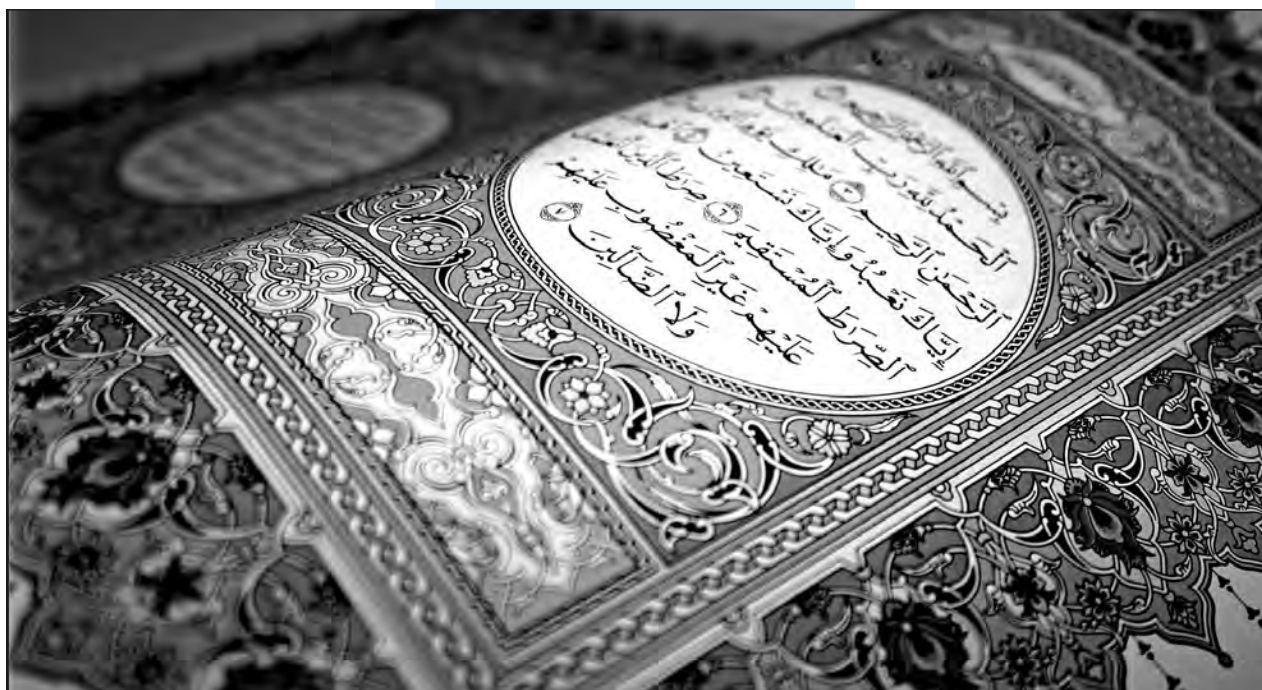 بِسْمِ ٱللَّهِ ٱلرَّحْمَٰنِ ٱلرَّحِيمِ
ٱلْحَمْدُ لِلَّهِ رَبِّ ٱلْعَٰلَمِينَ
ٱلرَّحْمَٰنِ ٱلرَّحِيمِ ٣ مَٰلِكِ يَوْمِ ٱلدِّينِ
إِيَّاكَ نَعْبُدُ وَإِيَّاكَ نَسْتَعِينُ ٥
ٱلصِّرَٰطَ ٱلْمُسْتَقِيمَ ٦ صِرَٰطَ ٱلَّذِينَ
عَلَيْهِمْ غَيْرِ ٱلْمَغْضُوبِ عَلَيْهِمْ
وَلَا ٱلضَّآلِّينَ ٧